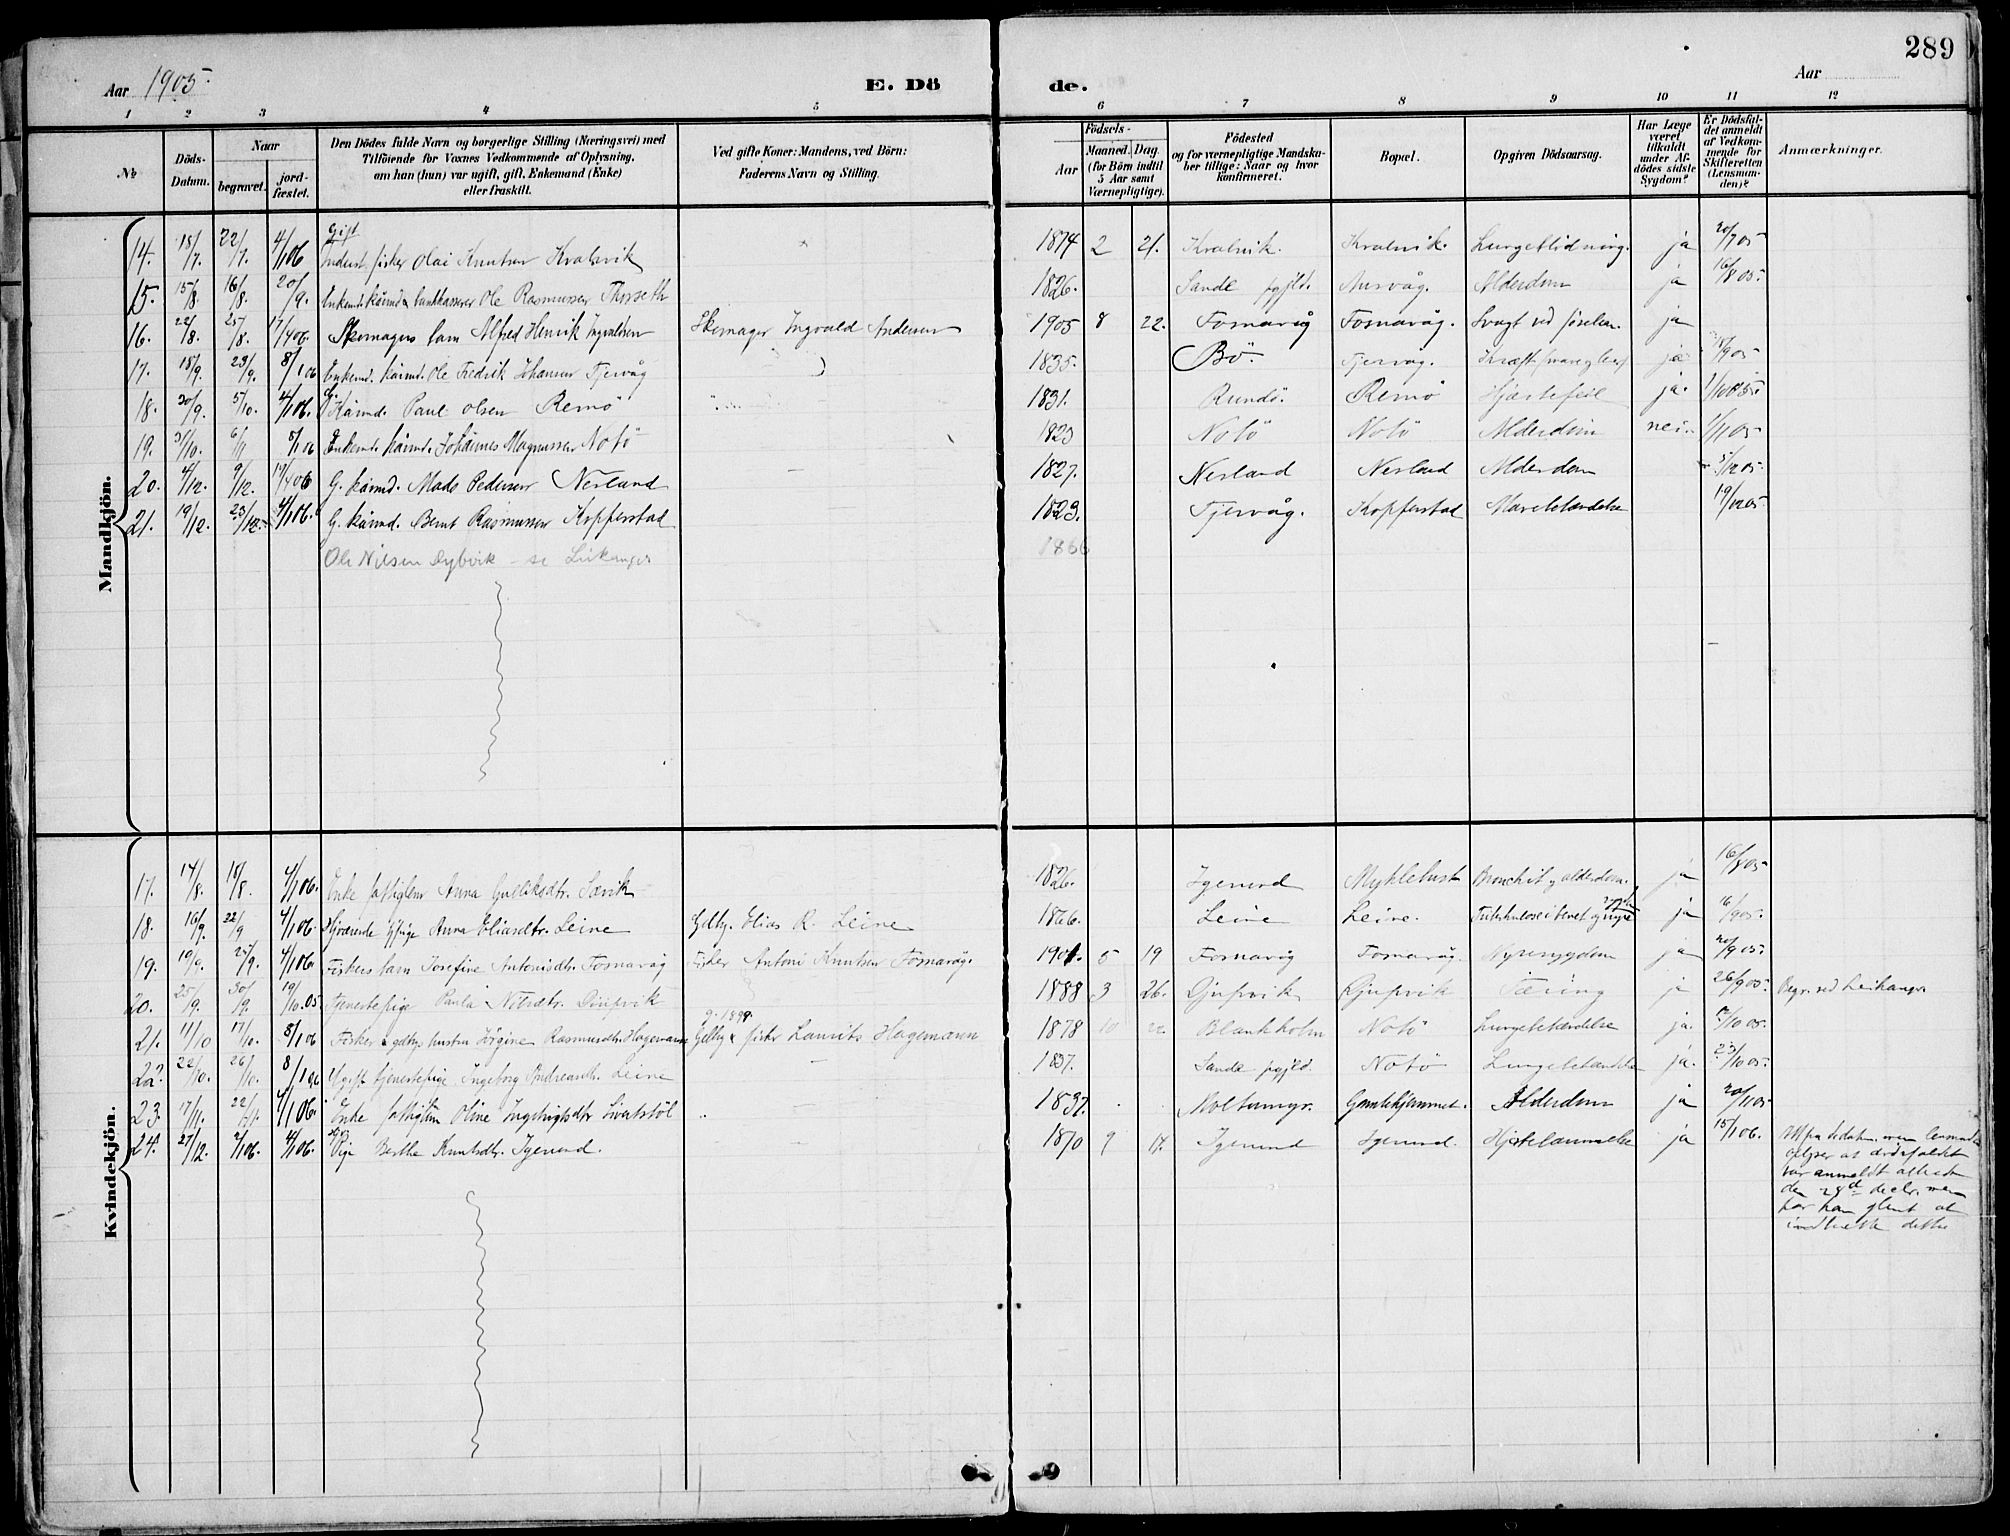 289
Aar 1905.
E. Döde.
Aar
1 2 3 4 5 6 7 8 9 10 11 12
No
Döds-Datum.
Naar
begravet.
jord-fæstet.
Den Dödes fulde Navn og borgerlige Stilling (Næringsvei) med
Tilföiende for Voxnes Vedkommende af Oplysning,
om han (hun) var ugift, gift, Enkemand (Enke)
eller fraskilt.
Ved gifte Koner: Mandens, ved Börn:
Faderens Navn og Stilling.
Födsels-
Aar
Maaned. Dag.
(for Börn indtil
5 Aar samt
Værnepligtige).
Födested
og for værnepligtige Mandska-
ber tillige: Naar og hvor
konfirmeret.
Bopæl.
Opgiven Dödsaarsag.
Har Læge
været
tilkaldt
under Af-
dödes sidste
Sygdom?
Er Dödsfal-
det anmeldt
af Vedkom-
mende for
Skifteretten
(Lensman-
den)?
Anmærkninger.
Mandkjön.
14. 18/7. 22/7. 4/1 06 Gift Inderst fisker Olai Knutsen Kvalsvik 1874 2 21. Kvalsvik. Kvalsvik. Lungeblödning. ja 20/7 05
15. 15/8. 16/8. 20/9. Enkemd. kårmd. Ole Rasmussen Thyrseth 1826. Sande pgjld. Aurvåg. Alderdom ja 16/8 05
16. 22/8. 25/8. 17/4 06. Skomagers barn Alfred Henrik Ingvaldsen Skomager Ingvald Andersen 1905 8 22. Fosnavåg Fosnavåg. Svagt ved fødselen. ja
17. 18/9. 23/9. 8/1 06 Enkemd. kårmd. Ole Fredrik Johansen Tjervåg 1835. Bö. Tjervåg. Kræft ja 05
18. 30/9. 5/10. 4/1 06. G. Kårmd. Paul Olsen Remö 1831. Rundö. Remö Hjertefeil ja. 05
19. 31/10. 6/11 8/1 06 Enkemd. kårmd. Johannes Magnussen Notö 1823 Notö Notö Alderdom nei 1/11 05
20. 4/12. 9/12. 17/4 06 G. kårmd. Mads Pedersen Nerland 1827. Nerland Nerland Alderdom 5/12 05
21. 19/12. 23/12 4/1 06. G. kårmd. Bernt Rasmussen Kopperstad 1823. Tjervåg. Kopperstad 19/12 05
Ole Nilsen Dybvik – se Leikanger 1866
Kvindekjön.
17. 14/8. 18/8. 4/1 06. Enke fattiglem Anna Gulliksdtr. Sævik 1826. Igesund Myklebust Bronchit og alderdom. ja 16/8 05
18. 16/9. 22/9 4/1 06. Hjemmeværende pige Anna Eliasdtr. Leine Gdbg. Elias R. Leine 1866. Leine Leine. Tuberkulose i benet og nyre ja 16/9 05
19. 19/9. 25/9. 4/1 06 Fiskers barn Josefine Antonisdtr. Fosnavåg Fisker Antoni Knutsen Fosnavåg. 1901 5 19 Fosnavåg Fosnavåg. Nyresygdom ja 20/9 05
20. 25/9. 30/9. 19/10.05 Tjenestepige Paula Nilsdtr. Djupvik 1888 3 26. Djupvik Djupvik Tæring ja 26/9 05 Begr. ved Leikanger
21. 11/10 17/10. 8/1 06 Fisker & gdbgs hustru Jörgine Rasmusdtr. Hagemann g. 1899 Gdbg & fisker Laurits Hagemann 1878 10 22 Blankholm Notö Lungebetændelse ja. /10 05
22. 22/10. 26/10. 8/1 06 Ugift tjenestepige Ingeborg Andreasdtr. Leine 1837. Sande pgjld. Notö Lungebetændelse ja. 23/10 05
23. 17/11. 22/11. 4/1 06. Enke fattiglem Oline Ingebrigtsdtr 1837. Moltumyr. Alderdom ja 20/11 05
24. 27/12. 2/1 06. 4/1 06. Pige Berthe Knutsdtr. Igesund. 1870 9 17. Igesund Igesund. Hjertelammelse ja 15/1 06.
lensmanden
oplyser at dødsfaldet
var anmeldt allerede
den 28d decbr. men
har han glemt at
indberette dette